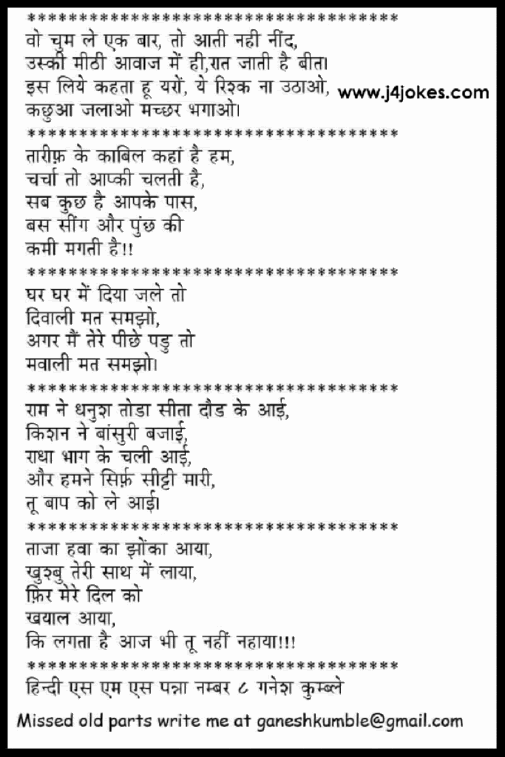 ************************************
वो चुम ले एक बार, तो आती नही नींद,
उस्की मीठी आवाज में ही,रात जाती है बीता।
इस लिये कहता हू यरों, ये रिश्क ना उठाओ,
www.j4jokes.com
कछुआ जलाओ मच्छर भगाओ।
************************************
तारीफ़ के काबिल कहां है हम,
चर्चा तो आप्की चलती है,
सब कुछ है आपके पास,
बस सींग और पुंछ की
कमी मगती है!!
************************************
घर घर में दिया जले तो
दिवाली मत समझो,
अगर मैं तेरे पीछे पडु तो
मवाली मत समझो।
************************************
राम ने धनुश तोडा सीता दौड के आई,
किशन ने बांसुरी बजाई,
राधा भाग के चली आई,
और हमने सिर्फ़ सीट्टी मारी,
तू बाप को ले आई।
************************************
ताजा हवा का झोंका आया,
खुश्बु तेरी साथ में लाया,
फ़िर मेरे दिल को
खयाल आया,
कि लगता है आज भी तू नहीं नहाया!!!
************************************
हिन्दी एस एम एस पन्ना नम्बर ८ गनेश कुम्ब्ले
Missed old parts write me at ganeshkumble@gmail.com